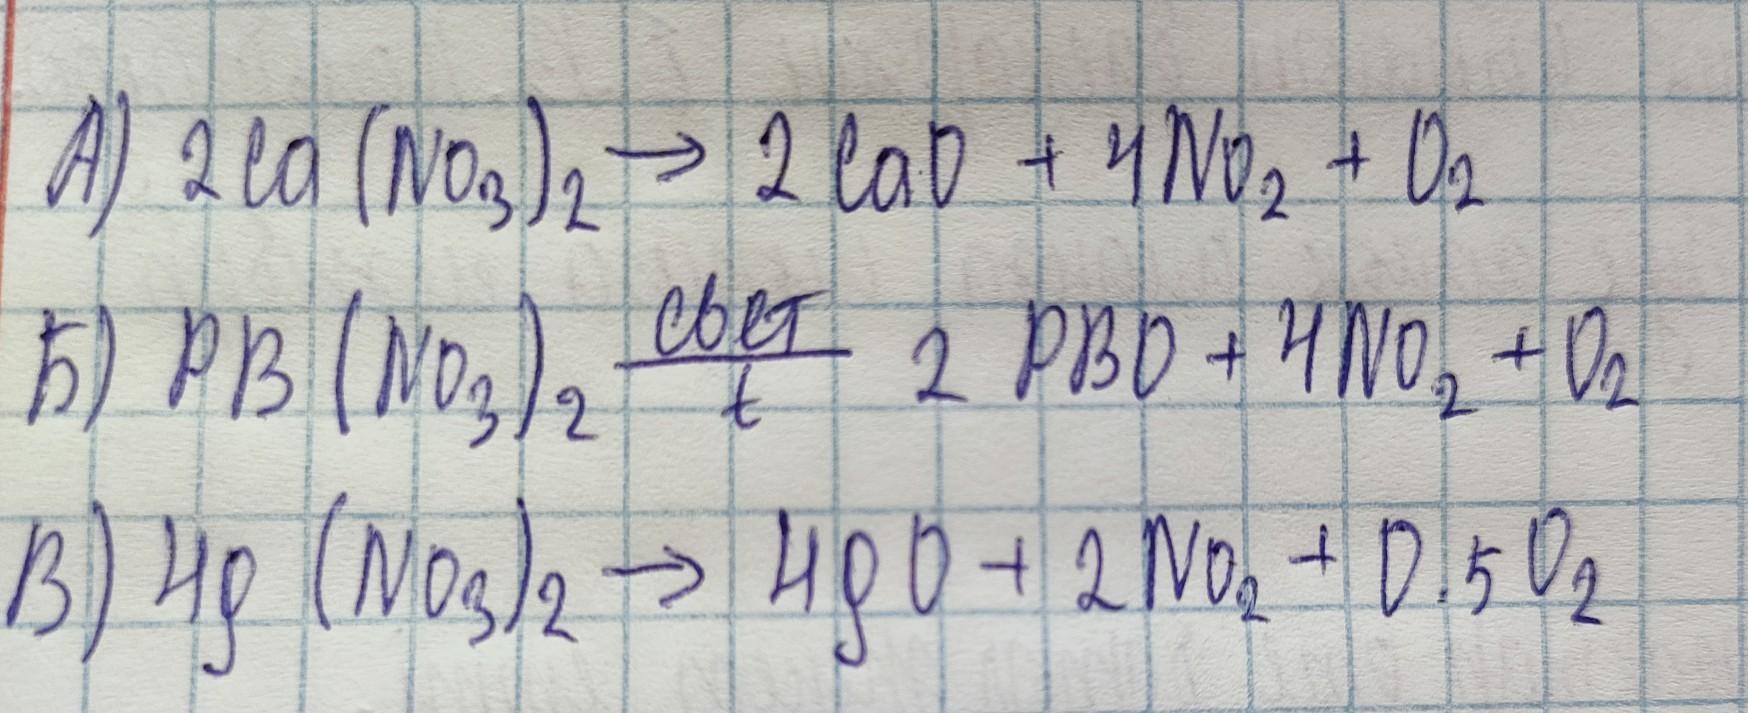 А) 2Ca(NO₃)₂ → 2CaO + 4NO₂ + O₂
Б) PB(NO₃)₂ свет/t 2 PBO + 4NO₂ + O₂
В) Hg(NO₃)₂ → HgO + 2NO₂ + 0.5O₂